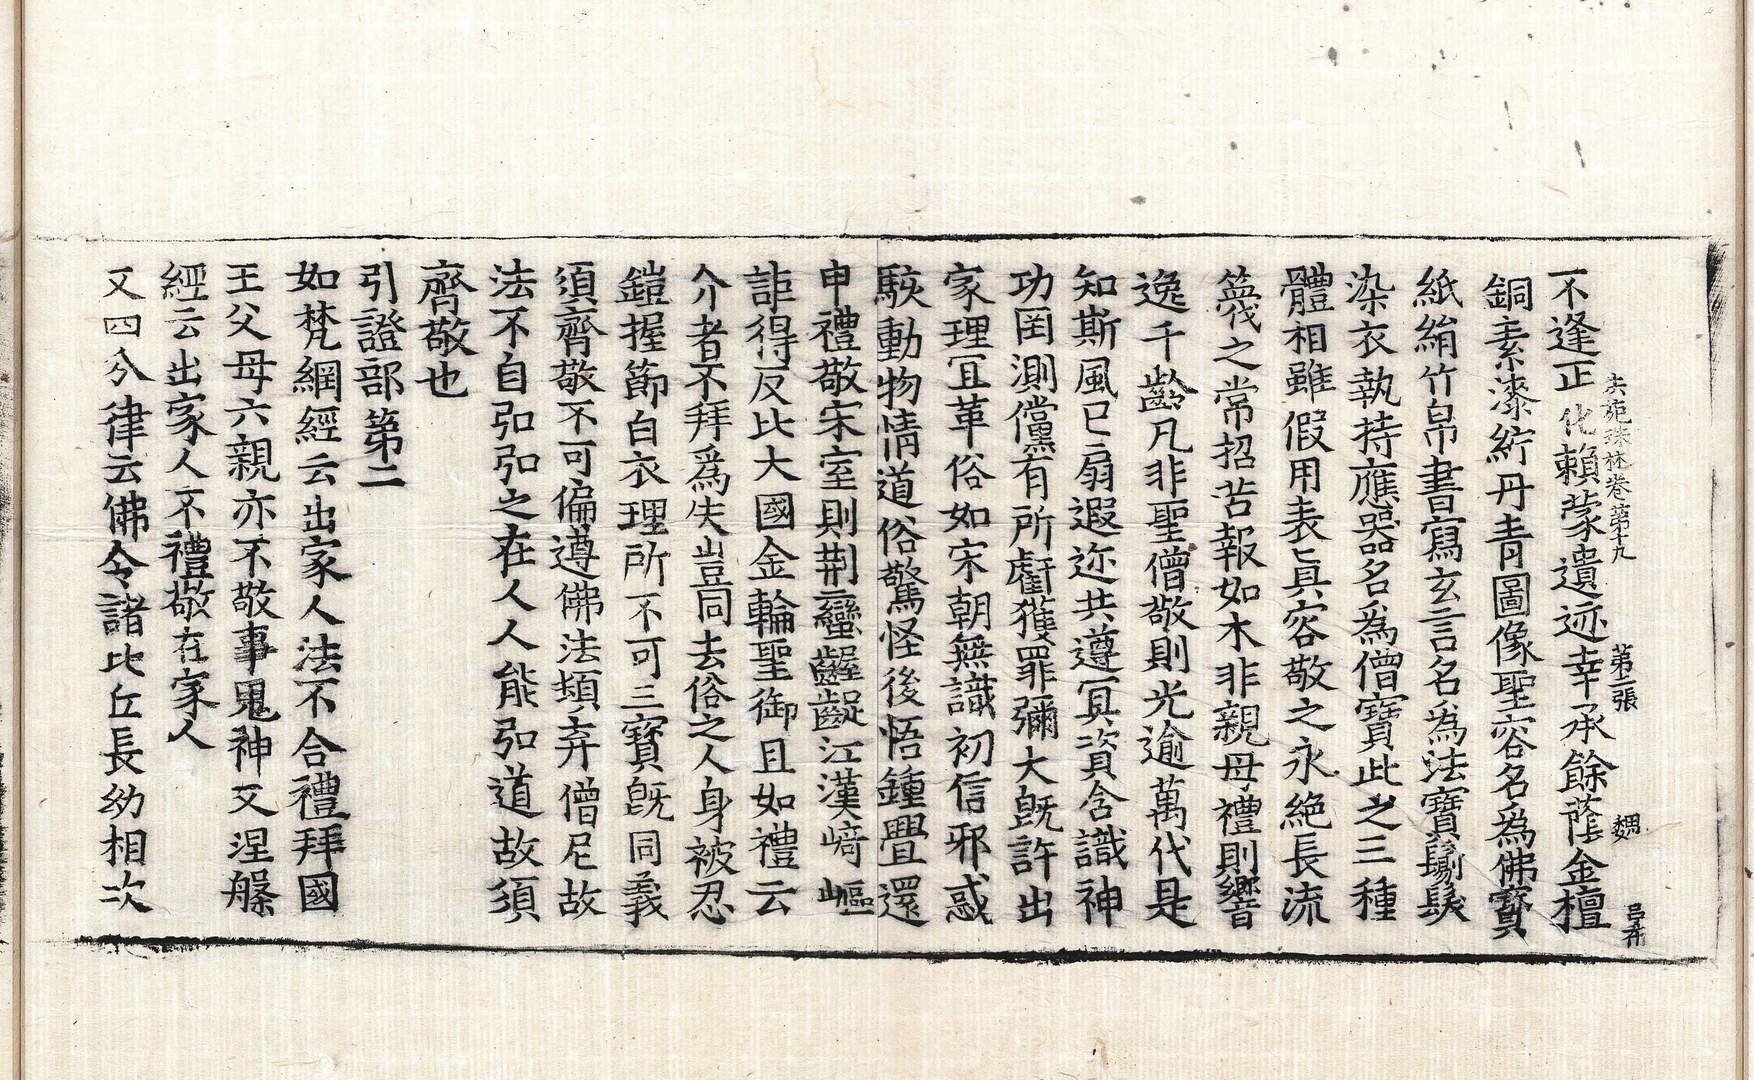 法苑珠林卷第十九 第二張
不逢正化賴蒙遺迹幸承餘蔭金檀
銅素漆紵丹青圖像聖容名爲佛寶
紙絹竹帛書寫玄言名爲法寶鬀髮
染衣執持應器名爲僧寶此之三種
體相雖假用表真容敬之永絕長流
篾之常招苦報如木非親母禮則響
逸千齡凡非聖僧敬則光逾萬代是
知斯風已扇遐迩共遵冥資含識神
功罔測儻有所虧獲罪彌大旣許出
家理宜革俗如宋朝無識初信邪惑
駭動物情道俗驚怪後悟鍾舋還
申禮敬宋室則荆蠻齷齪江漢崎嶇
詎得反比大國金輪聖御且如禮云
介者不拜爲失豈同去俗之人身被忍
鎧握節白衣理所不可三寶旣同義
須齊敬不可偏遵佛法頓弃僧尼故
法不自弘弘之在人人能弘道故須
齊敬也
引證部第二
如梵網經云出家人法不合禮拜國
王父母六親亦不敬事鬼神又涅槃
經云出家人不禮敬在家人
又四分律云佛令諸比丘長幼相次